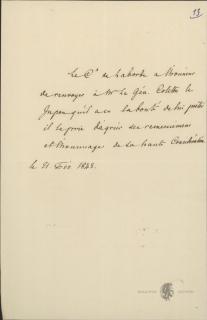 13
Le Cte de Laborde a l'honneur
de renvoyer à Mr le Gén. Colettis le
Japon qu'il a eu la bonté de lui prêter
il le prie d'agréer ses remerciemens
et l'hommage de sa haute Considération
le 21 Fév 1845.